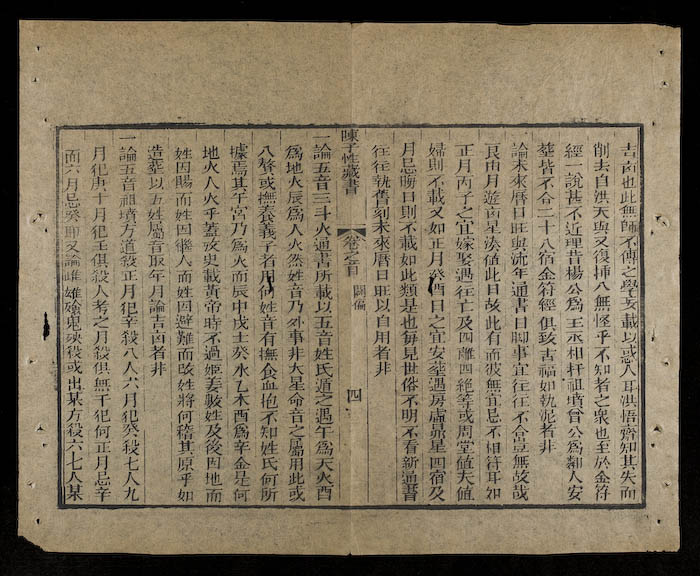 吉凶也此無師不傳之學妄載以惑人耳洪悟齋知其失而
削去自洪天與又復揷入無怪乎不知者之衆也至於金符
經一說甚不近理昔楊公為王丞相扦祖墳曾公為鄰人安
塋皆不合二十八宿金符經俱致吉福如執泥者非
論未來曆日旺與流年通書日脚事宜往往不合豈無故哉
良由月遊凶星湊値此日故此有而彼無宜忌不相符耳如
正月丙子之宜嫁娶遇往亡及四離四絶等或周堂値夫値
婦則不載又如正月癸酉日之宜安塟遇房虛鼎星四宿及
月忌晦日則不載如此類是也每見世俗不明不看新通書
往往執舊刻未來曆日旺以自用者非
陳子性藏書
卷之首
闢偽
四
一論五音三斗火通書所載以五音姓氏遁之遇午為天火酉
為地火辰為人火然姓音乃外事非大星命音之屬用此或
入贅或撫養義子者用何姓音有撫食血抱不知姓氏何所
據焉其午宮乃為火而辰中戌土癸水乙木酉為辛金是何
地火人火乎葢攷史載黃帝時不過姬姜數姓及後因地而
姓因賜而姓因繼人而姓因避難而改姓將何稽其原乎如
造塟以五姓屬音取年月論吉凶者非
一論五音祖墳方道殺正月犯辛殺八人六月犯癸殺七人九
月犯庚十月犯壬俱殺人考之月殺俱無干犯何正月忌辛
而六月忌癸耶又論雌雄殮鬼殃殺或出某方殺六七人某